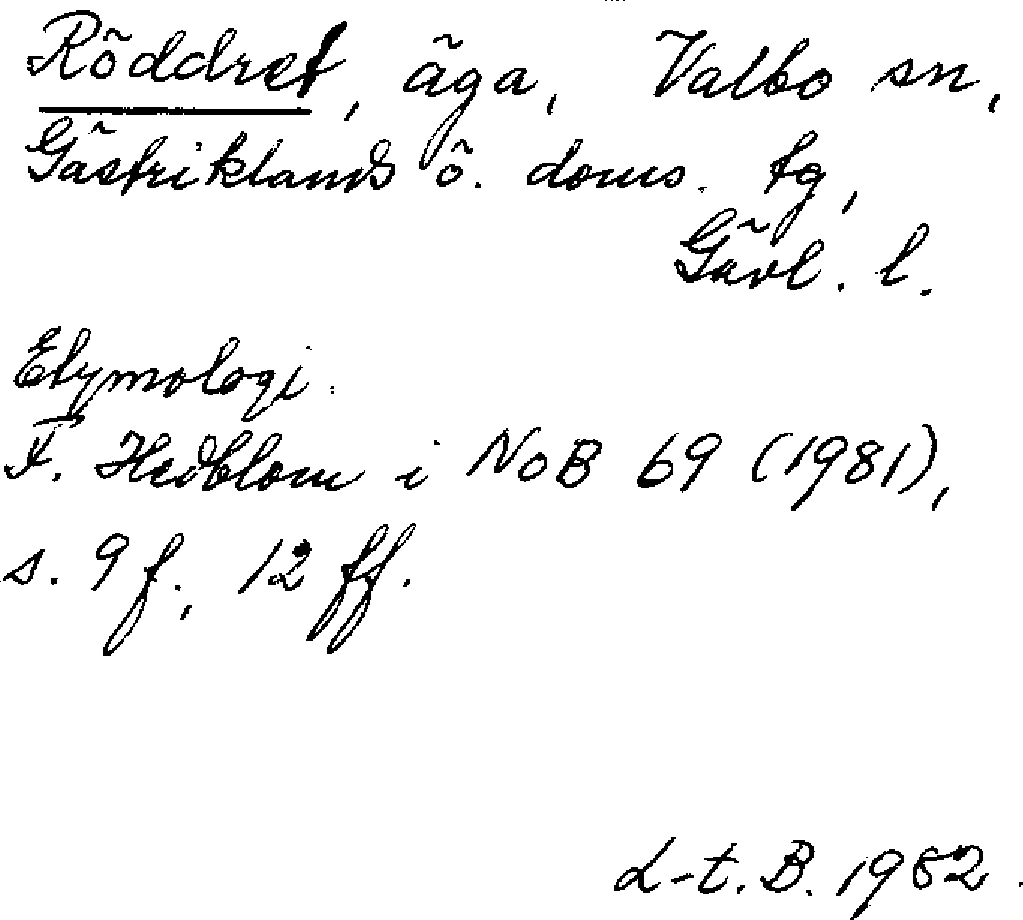 Röddret, äga, Valbo sn,
Gästriklands ö. doms. tg,
Gävl. l.
Etymologi:
F. Hedblom i NoB 69 (1981),
s. 9 f., 12 ff.
L-t. B. 1982.